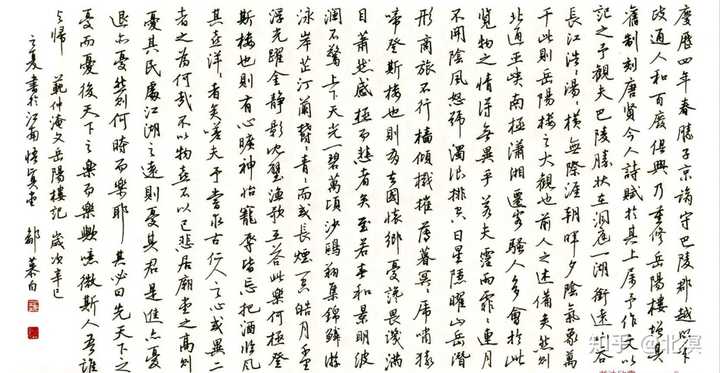 慶曆四年春滕子京謫守巴陵郡越明年
政通人和百廢俱興乃重修岳陽樓增其
舊制刻唐賢今人詩賦於其上屬予作文以
記之予觀夫巴陵勝狀在洞庭一湖銜遠山吞
長江浩浩湯湯橫無際涯朝暉夕陰氣象萬
千此則岳陽樓之大觀也前人之述備矣然則
北通巫峽南極瀟湘遷客騷人多會於此
覽物之情得無異乎若夫霪雨霏霏連月
不開陰風怒號濁浪排空日星隱曜山岳潛
形商旅不行檣傾楫摧薄暮冥冥虎嘯猿
啼登斯樓也則有去國懷鄉憂讒畏譏滿
目蕭然感極而悲者矣至若春和景明波
瀾不驚上下天光一碧萬頃沙鷗翔集錦鱗游
泳岸芷汀蘭郁郁青青而或長煙一空皓月千里
浮光躍金靜影沉璧漁歌互答此樂何極登
斯樓也則有心曠神怡寵辱皆忘把酒臨風
其喜洋洋者矣嗟夫予嘗求古仁人之心或異二
者之為何哉不以物喜不以己悲居廟堂之高則
憂其民處江湖之遠則憂其君是進亦憂
退亦憂然則何時而樂耶其必曰先天下之
憂而憂後天下之樂而樂歟噫微斯人吾誰
與歸 范仲淹文岳陽樓記 歲次辛巳
之夏書於江南悟真堂 鄒慕白
知乎 @北溟